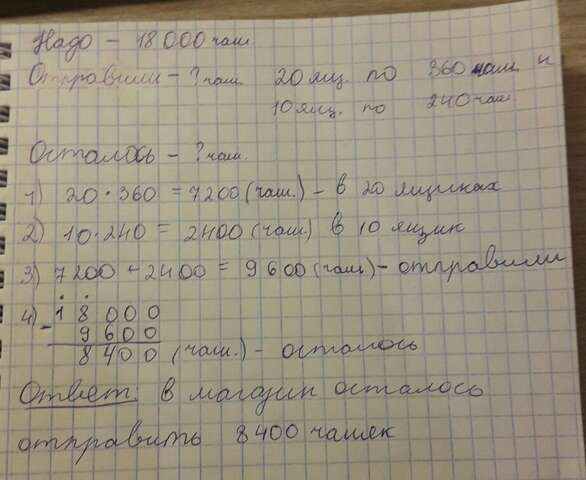 Надо - 18 000 чаш.
Отправили - ? чаш. 20 ящ. по 360 чаш и
10 ящ. по 240 чаш
Осталось - ? чаш.
1) 20 · 360 = 7200 (чаш.) - в 20 ящиках
2) 10 · 240 = 2400 (чаш) в 10 ящик
3) 7200 + 2400 = 9600 (чаш) - отправили
4) 18000
- 9600
8400 (чаш.) - осталось
Ответ: в магазин осталось
отправить 8400 чашек